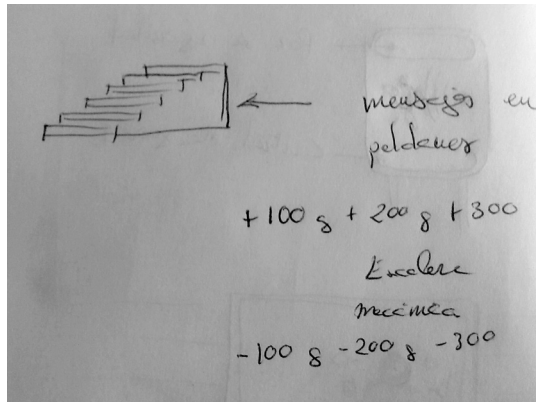 mensajes en
peldaños
+100 g +200 g +300
Escalera
mecánica
-100 g -200 g -300